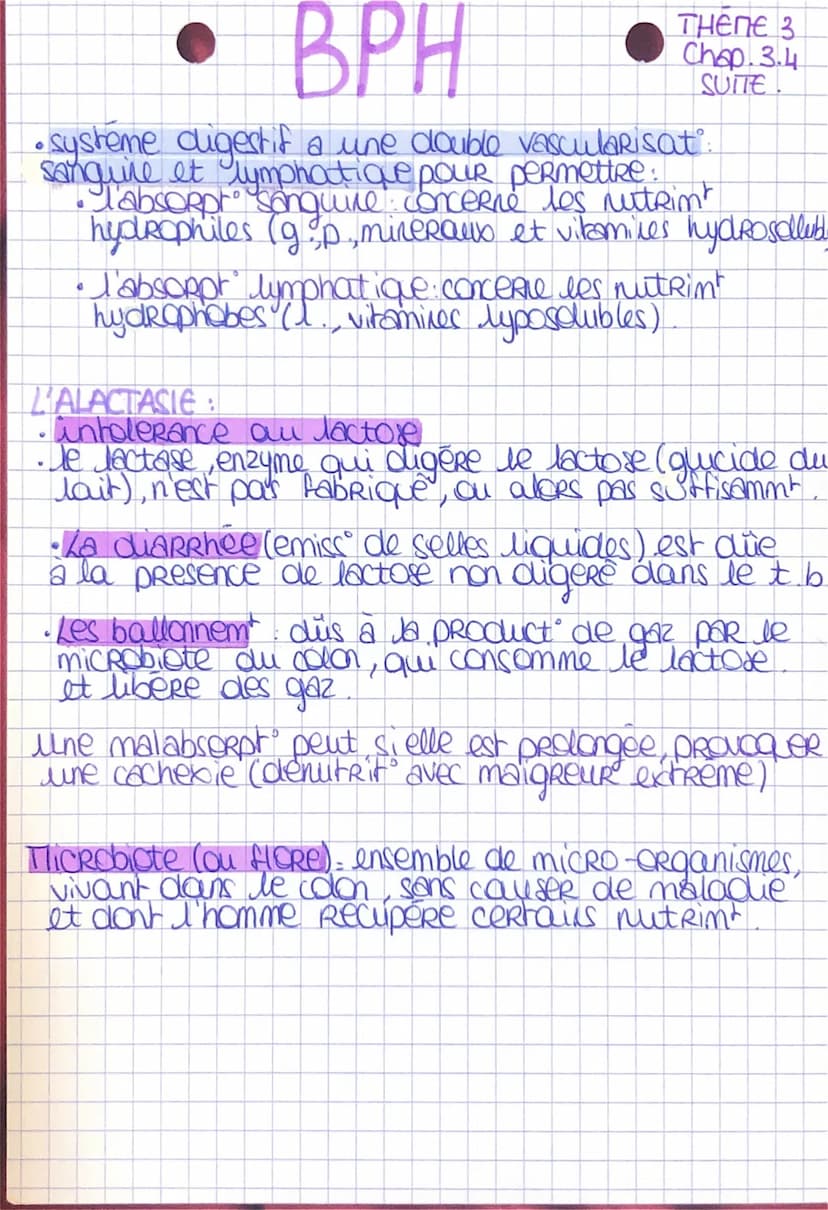 BPH
THÈME 3
Chap. 3.4
SUITE.
• système digestif a une double vascularisat°:
sanguine et lymphatique pour permettre:
• l'absorpt° sanguine: concerne les nutrimt
hydrophiles (g., p., minéraux et vitamines hydrosolubl
• l'absorpt° lymphatique: concerne les nutrimt
hydrophobes (l., vitamines lyposolubles).
L'ALACTASIE:
• intolérance au lactose
• le lactase, enzyme qui digère le lactose (glucide du
lait), n'est pas fabriqué, ou alors pas suffisammt.
• La diarrhée (émiss° de selles liquides) est dûe
à la présence de lactose non digéré dans le t.b
• Les ballonnemt: dûs à la product° de gaz par le
microbiote du colon, qui consomme le lactose
et libère des gaz.
Une malabsorpt° peut, si elle est prolongée, provoquer
une cachexie (dénutrit° avec maigreur extrême)
Microbiote (ou flore): ensemble de micro-organismes,
vivant dans le colon, sans causer de maladie
et dont l'homme récupère certains nutrimt.